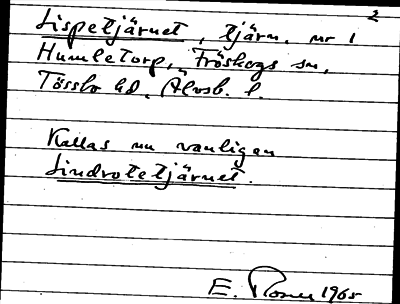 2
Lispetjärnet, tjärn. nr 1
Humletorp, Fröskogs sn,
Tössbo hd. Älvsb. l.
Kallas nu vanligen
Lindrotetjärnet.
E. 1965